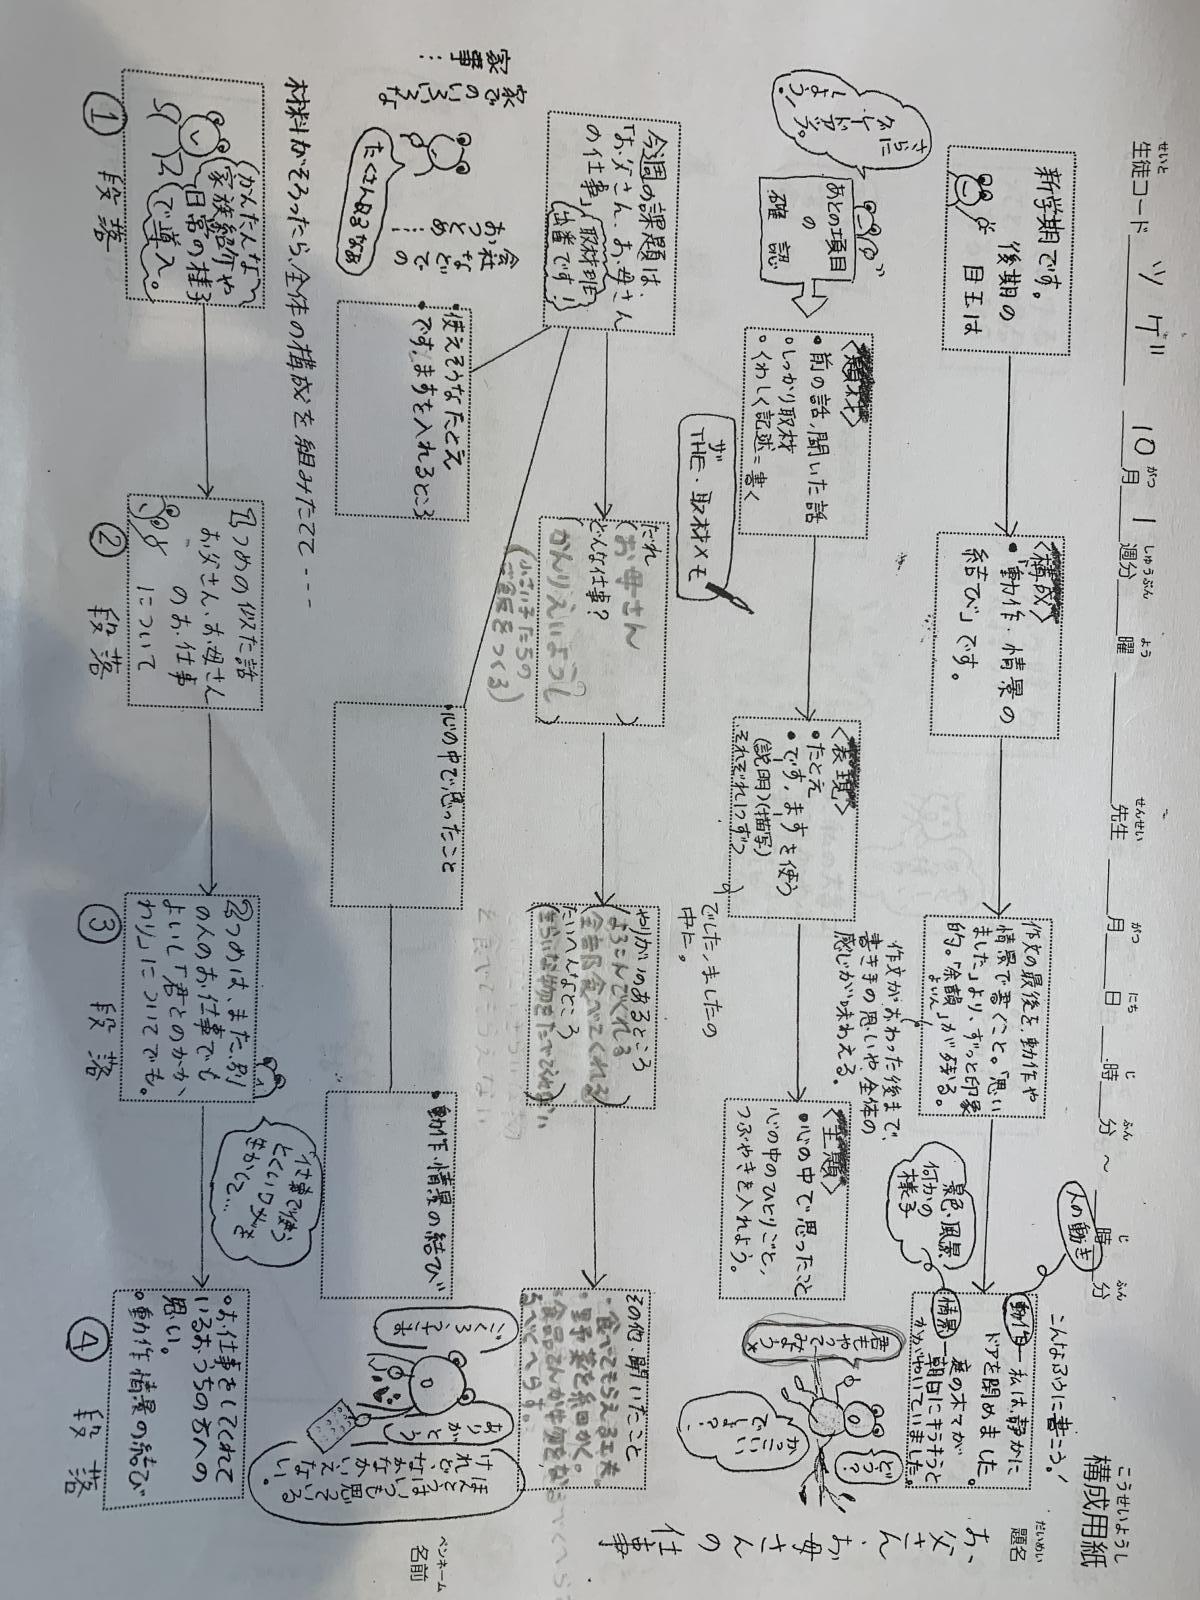 構成用紙
こうせいようし
生徒コード ツゲ 10月 1週分 曜 先生 月 日 時 分 ～ 時 分
せいと がつ しゅうぶん よう せんせい がつ にち じ ふん じ ふん
題名
だいめい
お父さん、お母さんの仕事
ペンネーム
名前
新学期です。
後期の
目玉は
〈構成〉
・「動作・情景の
結び」です。
作文の最後を、動作や
情景で書くこと。「思い
ました」より、ずっと印象
的。「余韻」が残る。
よいん
作文がおわった後まで、
書き手の思いや、全体の
感じが味わえる。
こんなふうに書こう!
人の動き
景色・風景
何かの
様子
動作―私は静かに
ドアを閉めました。
情景―庭の木々が
朝日にキラキラと
かがやいていました。
さらに
グレード
アップ
しよう!
あとの項目
の
確認
〈題材〉
・前の話、聞いた話
・しっかり取材
・くわしく記述=書く
ザ
THE・取材メモ
〈表現〉
・たとえ
・です、ますを使う
(説明)(描写)
それぞれ1つずつ
でした、ましたの
中に。
〈主題〉
・心の中で思ったこと
心の中のひとりごと、
つぶやきを入れよう。
君も
やって
みよう
どう?
かっこいい
でしょ?
今週の課題は、
「お父さん、お母さん
の仕事」
取材班
出番です!
だれ
(お母さん)
どんな仕事?
(かんりえいようし)
(小さい子たちの
ご飯をつくる)
やりがいのあるところ
(よろこんでくれる
全部食べてくれる)
たいへんなところ
(きらいな物をたべてくれない)
その他・聞いたこと
・食べてもらえる工夫
・野菜を細かく。
家での
いろいろな
家事…
会社
などでの
おつとめ…
たくさんあるなあ
・使えそうなたとえ
・です、ますを入れるところ
・心の中で思ったこと
・動作・情景の結び
ごくろうさま
ありがとう
ほんとうは
いつも思って
いる
けれど、なかなか
いえない。
材料がそろったら、全体の構成を組みたてて----
かんたんな
家族紹介や
日常の様子
で導入。
①段落
1つめの似た話
お父さん、お母さん
のお仕事
について
②段落
2つめは、また、別
の人のお仕事でも
よいし「君とのかか
わり」についてでも。
③段落
仕事で使う
とくいワザを
きかして…
・お仕事をしてくれて
いるおうちの方への
思い。
・動作・情景の結び
④段落